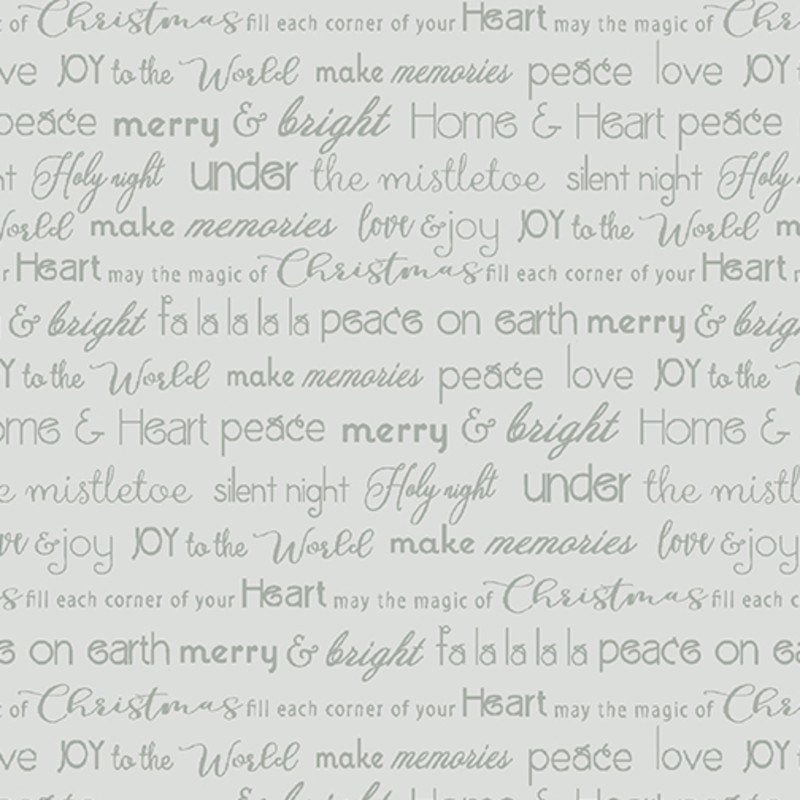 of Christmas fill each corner of your Heart may the magic of Chr
ve JOY to the World make memories peace love JOY
peace merry & bright Home & Heart peace
nt Holy night under the mistletoe silent night Holy
World make memories love & joy JOY to the World m
r Heart may the magic of Christmas fill each corner of your Heart
& bright fa la la la la peace on earth merry & brig
Y to the World make memories peace love JOY to the
ome & Heart peace merry & bright Home &
e mistletoe silent night Holy night under the mistl
ve & joy JOY to the World make memories love & joy
s fill each corner of your Heart may the magic of Christmas fill each c
e on earth merry & bright fa la la la la peace on ea
of Christmas fill each corner of your Heart may the magic of Chr
ve JOY to the World make memories peace love JOY